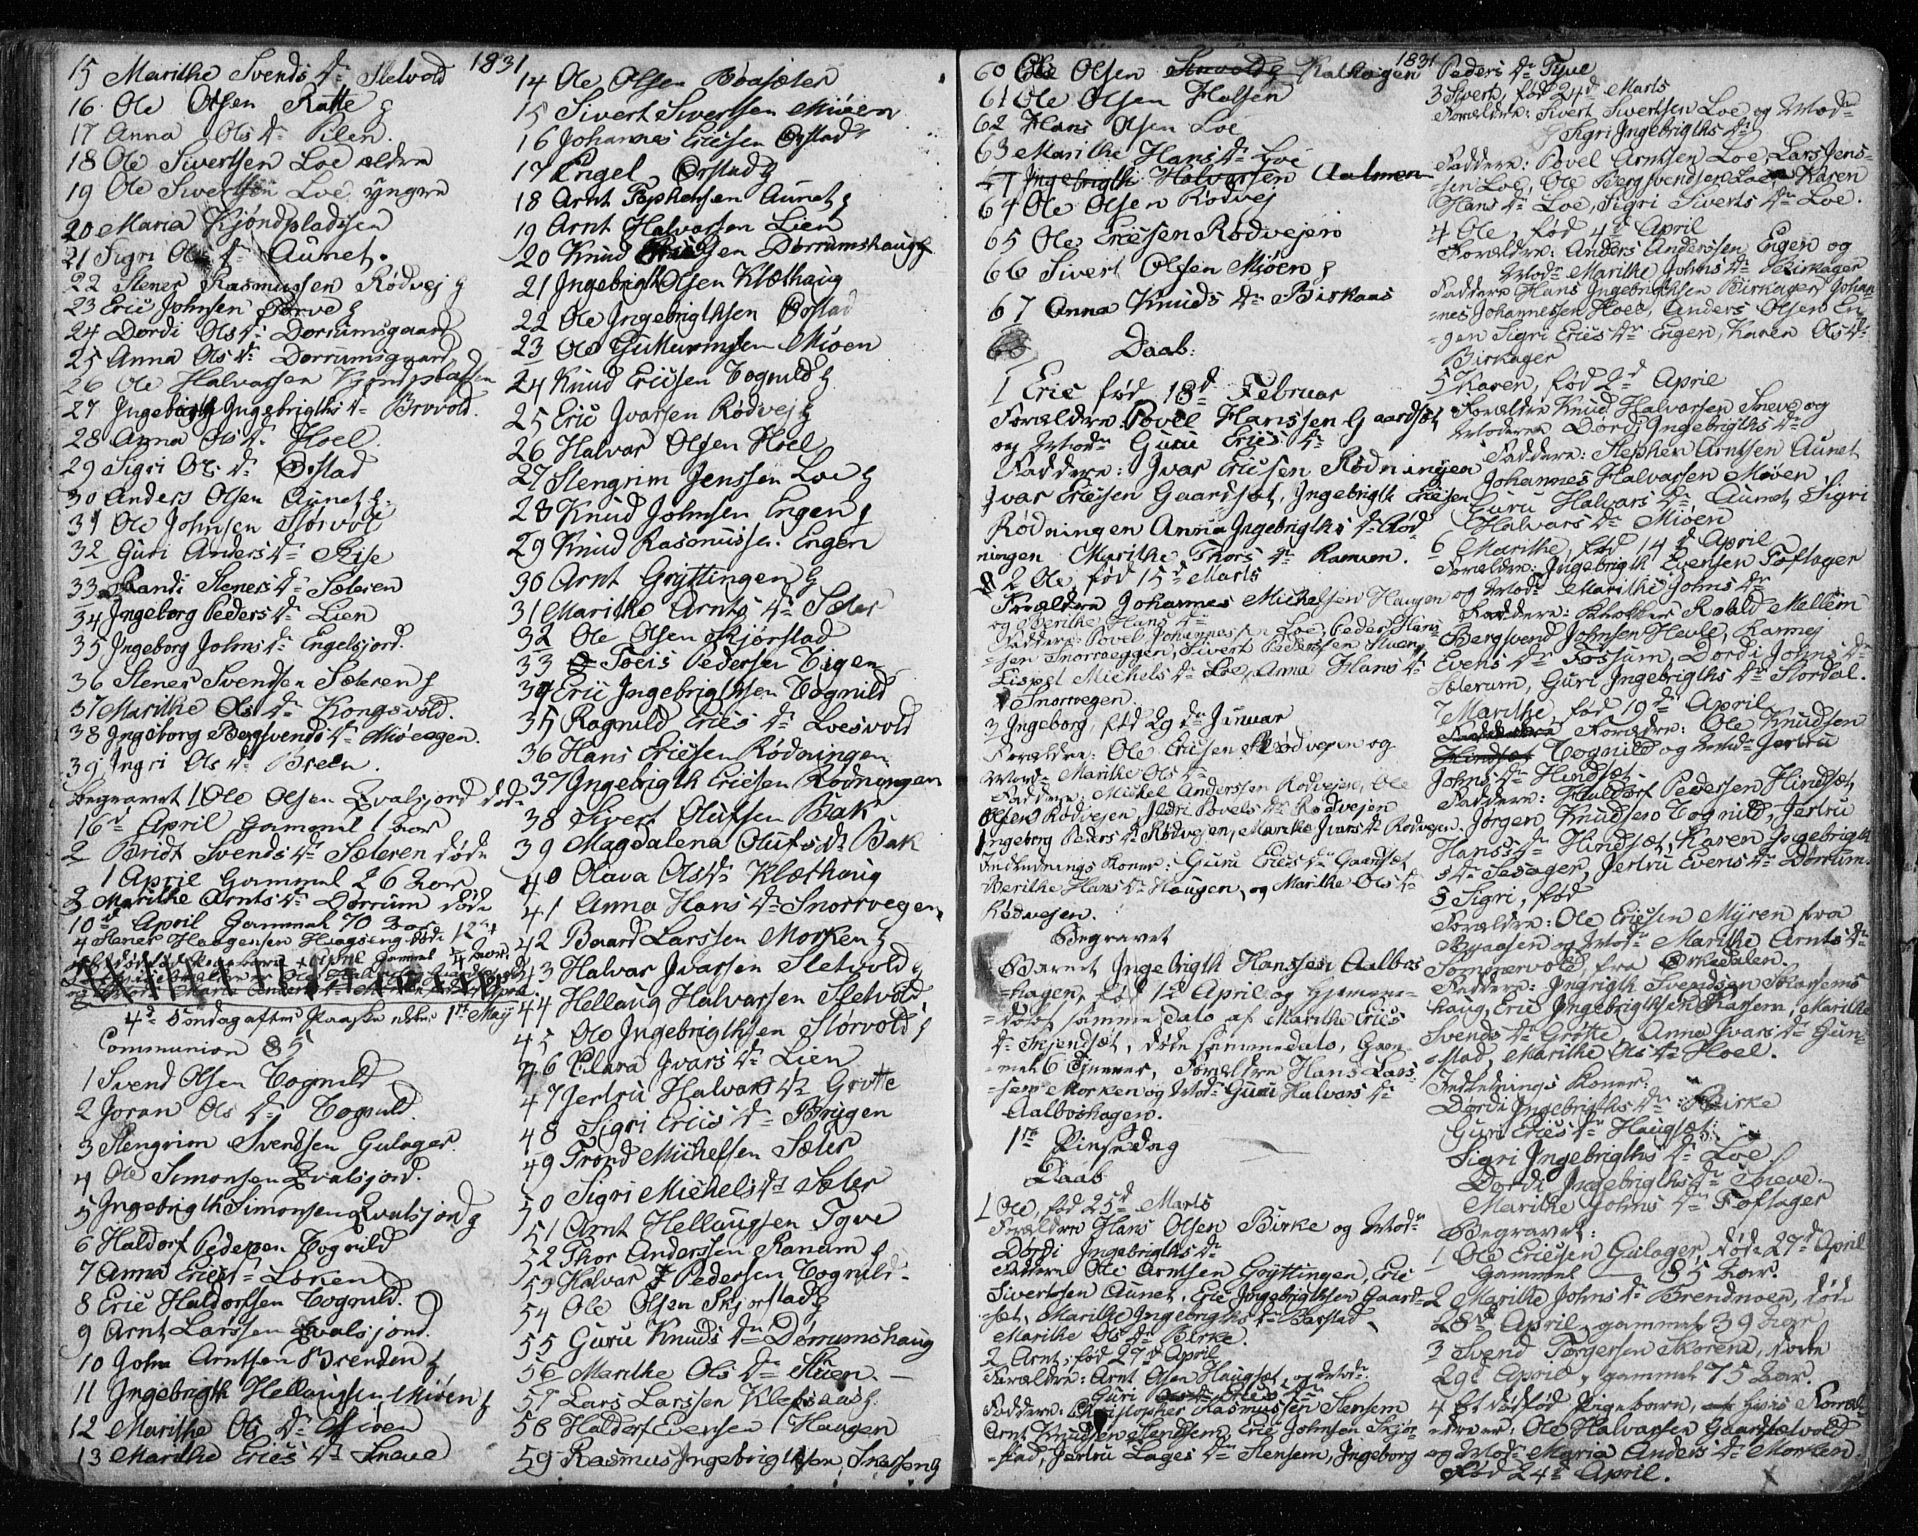 1831
15 Marithe Svends Dr Sletvold
16 Ole Olsen Ratte
17 Anna Ols Dr
18 Ole Sivertsen Loe ældre
19 Ole Sivertsen Loe yngre
20 Maria Kjøndpladsen
21 Sigri Ols Dr Aunet.
22 Stener Rasmussen Rødvej
23 Eric Johnsen
24 Dordi Ols Dr Dørrumsgaard
25 Anna Ols Dr Dørrumsgaard
26 Ole Halvarsen
27 Ingebrigth Ingebrigths Dr
28 Anna Ols Dr Hoel.
29 Sigri Ols Dr Ørstad
30 Anders Olsen Aunet
31 Ole Johnsen Størvol
32 Guri Anders Dr
33 Randi Steners Dr Sæteren
34 Ingeborg Peders Dr Lien
35 Ingeborg Johns Dr Engelsjord.
36 Stener Svendsen Sæteren
37 Marithe Ols Dr Kongsvold.
38 Ingeborg Bergsvends Dr
39 Ingri Ols Dr
Begravet 1 Ole Olsen Qvalsjord døde
16d April Gammel 1 Aar
2 Bridt Svends Dr Sæteren døde
1 April Gammel 26 Aar
3 Marithe Arnts Dr Dørrum døde
10d April Gammel 70 Aar
4 Stener Haagensen døde 12d
4de Søndag efter Paaske 1ste Maij
Communion 85
1 Svend Olsen Tognild
2 Joran Ols Dr Tognild.
3 Stengrim Svendsen Gulager.
4 Ole Simonsen Qvalsjord.
5 Ingebrigth Simonsen Qvalsjord
6 Haldorf Pedersen Tognild
7 Anna Erics Dr Løken
8 Eric Haldorfsen Tognild.
9 Arnt Larssen Qvalsjord.
10 John Arntsen Brenden
11 Ingebrigth Hellaugsen Mioen
12 Marithe Ols Dr Mioen
13 Marithe Erics Dr Sneve
14 Ole Olsen
15 Sivert Sivertsen Mioen
16 Johannes Ericsen Ørstad
17 Engel Ørstad
18 Arnt Stephensen Aunet
19 Arnt Halvarsen Lien
20 Knud Ericsen Dørrumshaug
21 Ingebrigth Olsen Klæthaug
22 Ole Ingebrigthsen Ørstad
23 Ole Guttormsen Mioen
24 Knud Ericsen Tognild
25 Eric Ivarsen Rødvej
26 Halvar Olsen Hoel
27 Stengrim Jenssen Loe
28 Knud Johnsen Engen
29 Knud Rasmussen Engen
30 Arnt Grÿttingen
31 Marithe Arnts Dr Sæter
32 Ole Olsen Skjørstad
33 Pedersen
34 Eric Ingebrigthsen Tognild
35 Ragnild Erics Dr Loesvold
36 Hans Ericsen Rødningen
37 Ingebrigth Ericsen Rødningen
38 Sivert Olufsen Bak
39 Magdalena Olufs Dr Bak
40 Olava Ols Dr Klæthaug
41 Anna Hans Dr Snorrvegen
42 Baard Larssen Morken
43 Halvar Ivarsen Sletvold
44 Hellaug Halvarsen Sletvold
45 Ole Ingebrigthsen Størvold
46 Clara Ivars Dr Lien
47 Jertru Halvars Dr Grøtte
48 Sigri Erics Dr Briggen
49 Trond Michelsen Sæter
50 Sigri Michels Dr Sæter
51 Arnt Hellaugsen Tyve
52 Thor Anderssen Ranum
53 Halvar Pedersen Tognild.
54 Ole Olsen Skjørstad
55 Guru Knuds Dr Dørrumshaug
56 Marithe Ols Dr
57 Lars Larssen
58 Haldorf Evensen Haugen
59 Rasmus Ingebrigthsen
1831
60 Ole Olsen
61 Ole Olsen
62 Hans Olsen Loe
63 Marithe Hans Dr Loe
Ingebrigth Halvarsen Aalmen
64 Ole Olsen Rødvej
65 Ole Ericsen Rødvejen
66 Sivert Olsen Mioen
67 Anna Knuds Dr Birkaas
Daab:
1 Eric født 18d Februar
Forældre: Povel Hanssen Gaardsæt
og Modr Guru Erics Dr
Faddere: Ivar Ericsen Rødningen
Ivar Ericsen Gaardsæt, Ingebrigth Ericsen
Rødningen Anna Ingebrigths Dr Rød
ningen Marithe Thors Dr Ranum.
2 Ole, fød 15d Marts
Forældre Johannes Michelsen Haugen
og Berithe Hans Dr
Faddere: Povel Johannessen Loe, Peder Hans-
-sen Snorroeggen, Sivert Pedersen
Michels Dr Loe, Anna Hans Dr
Snorvegen.
3 Ingeborg, fød 29de Januar
Forældre: Ole Ericsen Rødvejen og
Modr Marithe Ols Dr
Faddere: Michel Anderssen Rødvejen, Ole
Olsen Rødvejen, Povels Dr Rødvejen
Ingeborg Peders Dr Rødvejen, Marithe Ivars Dr Rødvejen
Indlednings Koner: Guru Erics Dr Gaardsæt
Berithe Hans Dr Haugen, og Marithe Ols Dr
Rødvejen.
Begravet
Barnet Ingebrigth Hanssen Aalbos
-hagen, fød 12 April og hjemme-
-døbt samme dato af Marithe Erics
Dr døde sammedato, Gam-
-mel 6 Timer, Forældre Hans Lars-
-sen Morken og Modr Guru Halvars Dr
Aalboshagen.
1ste Pinsedag
Daab
1 Ole, fød 25d Marts
Forældre Hans Olsen Birke og Modr
Dordi Ingebrigths Dr
Faddere Ole Arntsen Grÿttingen, Eric
Sivertsen Aunet, Eric Ingebrigthsen Gaard-
sæt, Marithe Ingebrigths Dr
Marithe Ols Dr Birke.
2 Arnt, fød 27d April
Forældre: Arnt Olsen Haugsæt, og Modr
Guri
Faddere: Christopher Rasmussen Stensem
Arnt Knudsen Stensem, Eric Johnsen Skjør-
-stad, Jertru Dr Stensem, Ingeborg
Peders Dr Tyve
3 Sivert, fød 24d Marts
Forældre: Sivert Sivertsen Loe og Modr
Sigri Ingebrigths Dr
Faddere: Povel Arntsen Loe, Lars Jens-
-sen Loe, Ole Bergsvendsen Loe, Karen
Hans Dr Loe, Sigri Siverts Dr Loe.
4 Ole, fød 4d April
Forældre: Anders Anderssen Engen og
Modr Marithe Johns Dr Birkager
Faddere Hans Ingebrigthsen Birkager Johan-
nes Johannessen Hoel, Anders Olsen En
-gen Sigri Erics Dr Engen, Karen Ols Dr
Birkager
5 Karen, fød 2d April
Forældre Knud Halvarsen Sneve og
Moderen Dordi Ingebrigths Dr
Faddere: Stephen Arntsen Aunet
Johannes Halvarsen Mioen
Guru Halvars Dr Aunet, Sigri
Halvars Dr Mioen
6 Marithe, fød 14d April
Forældre: Ingebrigth Evensen Toftager
og Modr Marithe Johns Dr
Faddere: Mellem
Bergsvend Johnsen Hevle, Rannej
Evens Dr Fossum, Dordi Johns Dr
Sæterum, Guri Ingebrigths Dr Stordal.
7 Marithe, fød 19d April
Forældre: Ole Knudsen
Tognild og Modr Jertru
Johns Dr Hindsæt
Faddere: Haldorf Pedersen Hindsæt,
Jørgen Knudsen Tognild, Jertru
Hans Dr Hindsæt, Karen Ingebrigth
s Dr Jertru Evens Dr Dørrum.
8 Sigri, fød
Forældre: Ole Ericsen Mÿren fra
og Modr Marithe Arnts Dr
Sommervold, fra Orkedalen.
Faddere: Ingrigth Svendsen
haug, Eric Ingebrigthsen Marithe
Svends Dr Grøtte, Anna Ivars Dr Gun-
-stad, Marithe Ols Dr Hoel.
Indlednings Koner:
Dordi Ingebrigths Dr Birke
Guri Erics Dr Haugsæt
Sigri Ingebrigths Dr Loe
Dordi Ingebrigths Dr Sneve
Marithe Johns Dr Toftager
Begravet:
1 Ole Ericsen Gulager, døde 27d April
Gammel 85 Aar.
2 Marithe Johns Dr Brendmoen, døde
28d April, gammel 39 Aar
3 Svend Torgersen Skoren, døde
29d April, gammel 75 Aar.
4 Et dødfød Pigebarn, hvis Foræl-
-dre er, Ole Halvarsen Gaardsætvold
og Modr Maria Anders Dr Morken
Fød 24d April.